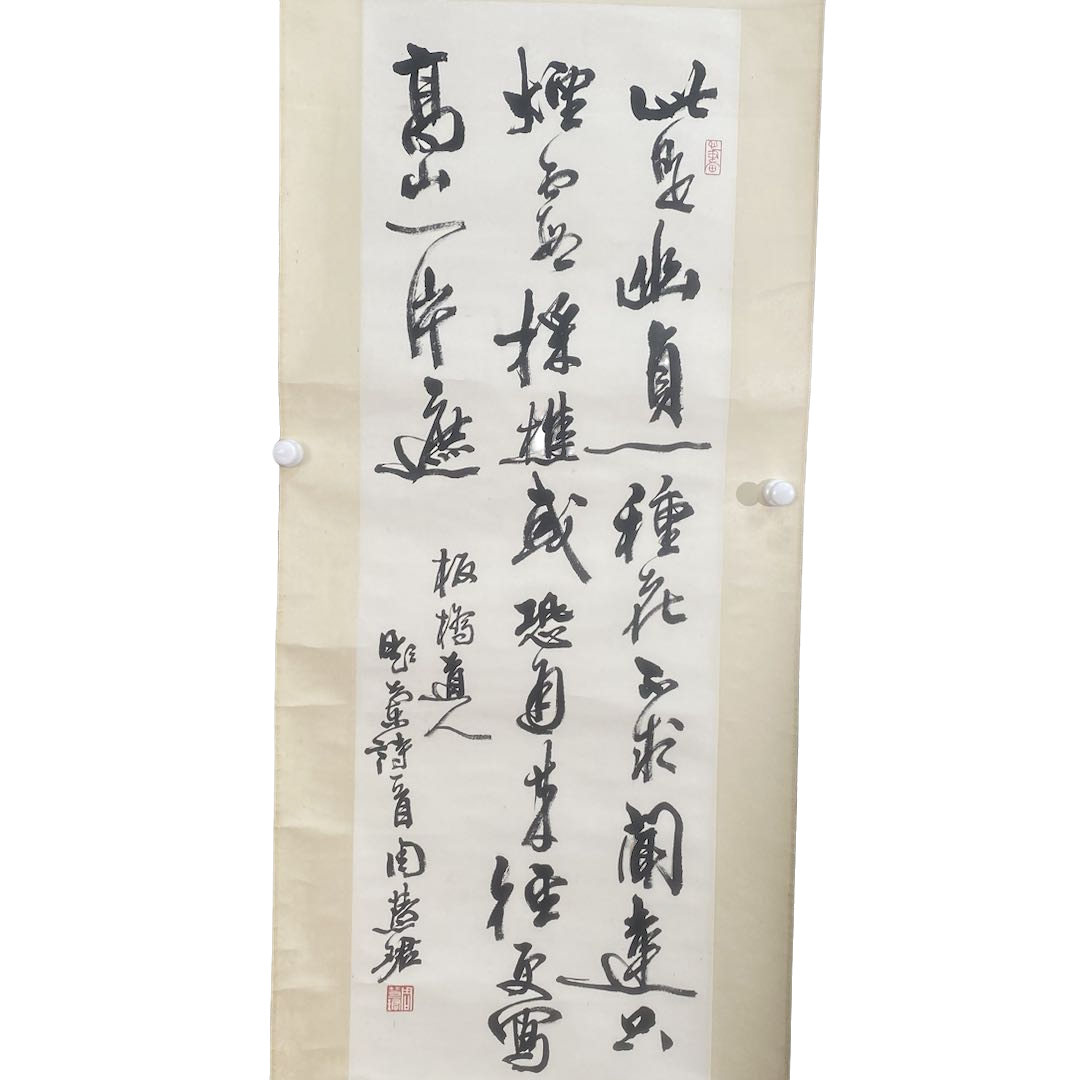 此是幽貞一種花不求聞達只
煙霞採樵或恐通来徑更寫
高山一片遮
板橋道人
題蘭詩一首周慧珺